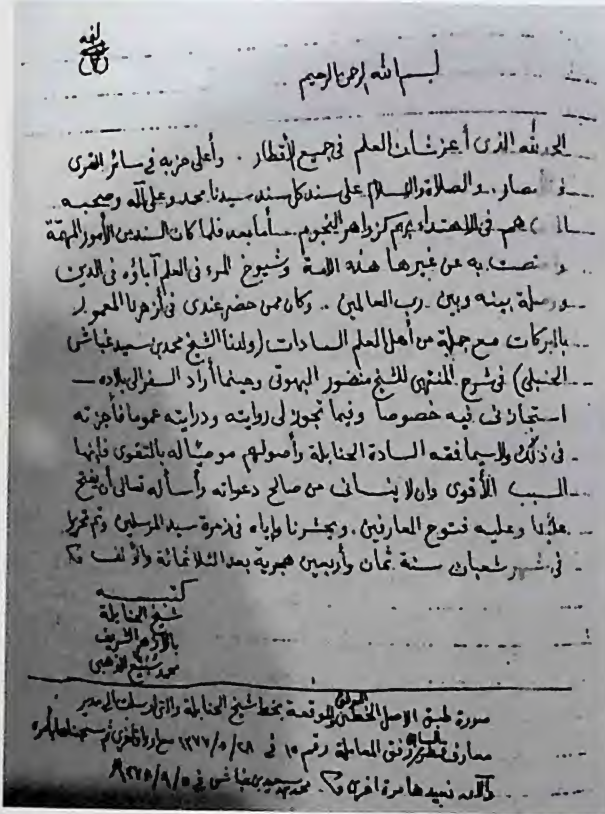 لفه
(٧)
بسم الله الرحمن الرحيم
الحمد لله الذى أعز شأن العلم فى جميع الأقطار . وأعلى حزبه فى سائر القرى
والصلاة والسلام على سند كل سند سيدنا محمد وعلى آله وصحبه .
هم فى الاهتداء بهم كزواهر النجوم . أما بعد فلما كان السند من الأمور المهمة
به عن غيرها هذه الامة وشيوخ المرء فى العلم آباؤه فى الدين
ووصلة بينه وبين رب العالمين .. وكان ممن حضر عندى فى أزهرنا المعمور
بالبركات مع جملة من أهل العلم السادات (ولدنا الشيخ محمد بن سعيد غباش
الحنبلى) فى شرح المنتهى للشيخ منصور البهوتى وحينما أراد السفر الى بلاده
استجازنى فيه خصوصا وفيما تجوز لى روايته ودرايته عموما فأجزته
فى ذلك ولاسيما فقه السادة الحنابلة وأصولهم موصيا له بالتقوى فإنها
السبب الأقوى وان لا ينسانى من صالح دعواته وأسأله تعالى أن يفتح
علينا وعليه فتوح العارفين . ويحشرنا وإياه فى زمرة سيد المرسلين وتم تحريرا
فى شهر شعبان سنة ثمان وأربعين هجرية بعد الثلاثمائة والألف
كتبه
شيخ الحنابلة
بالأزهر الشريف
محمد سبيع الذهبى
صورة طبق الاصل الخطى الموقعة بخط شيخ الحنابلة والتى ارسلت الى مدير
معارف قطر وفق المعاملة رقم ١٥ فى ٢٨/٥/١٣٧٧
والآن نعيدها مرة اخرى محمد بن سعيد بن غباش فى ٥/٩/١٣٧٨